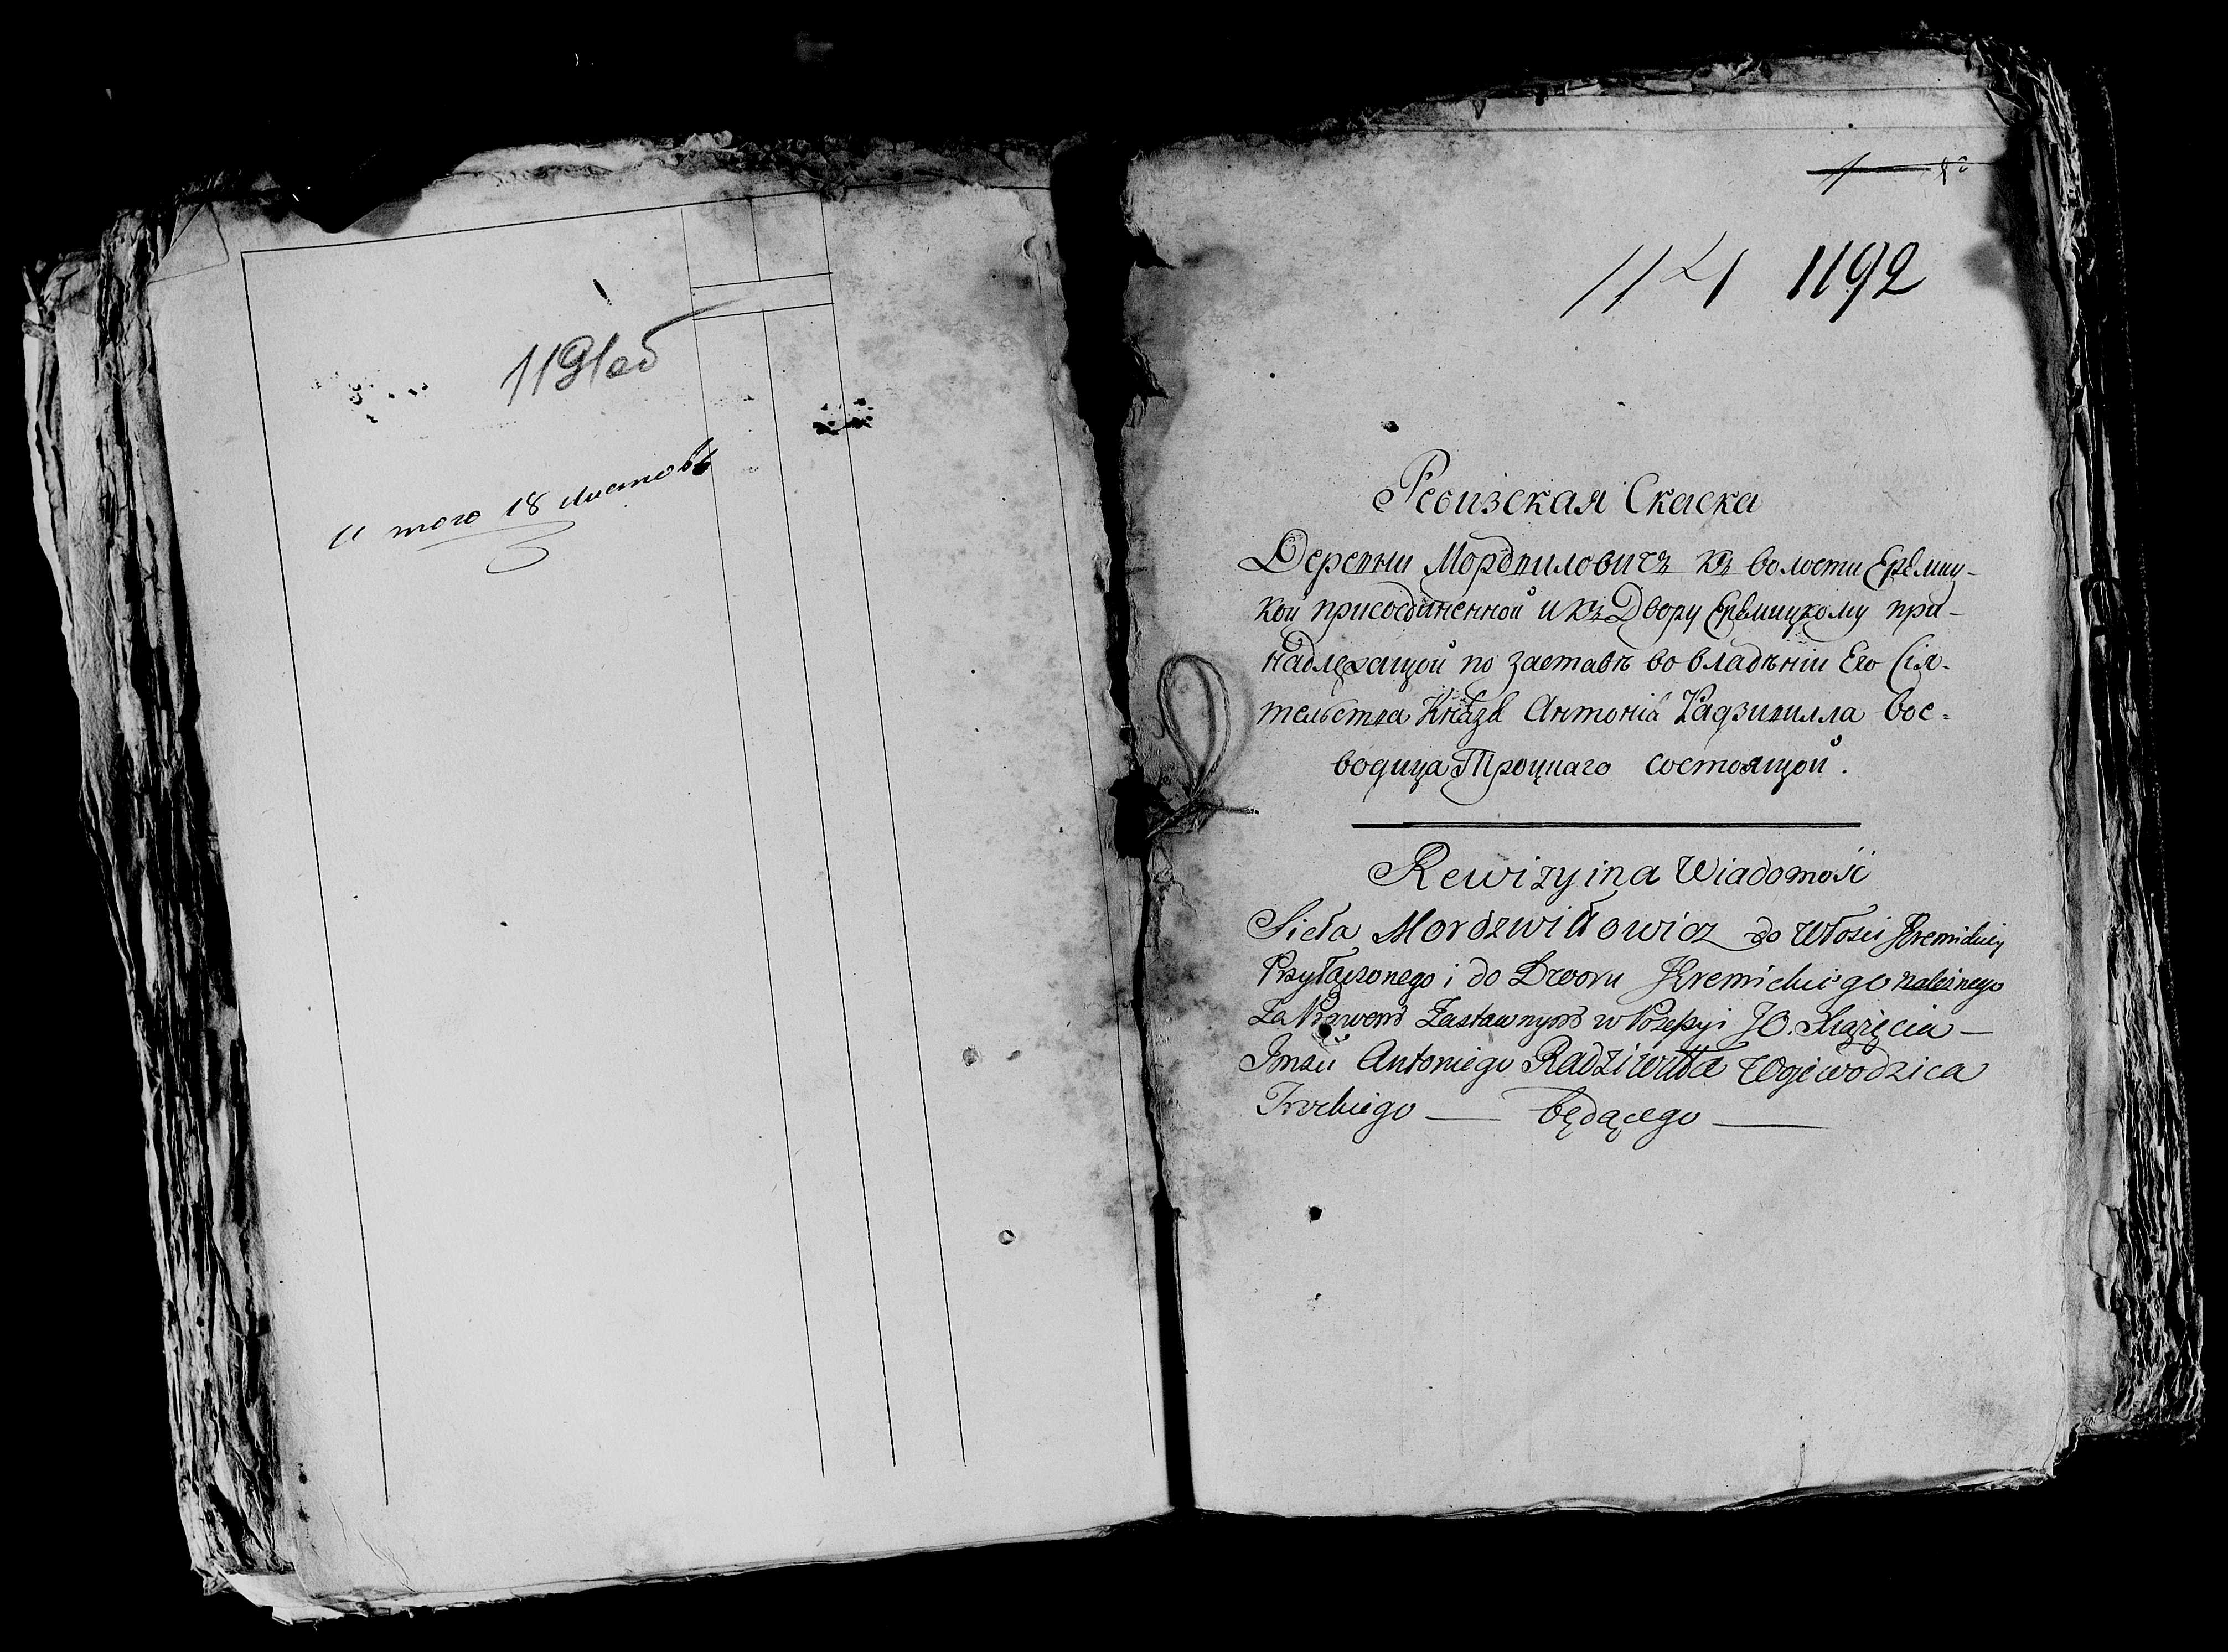 1191об
и того 18 листовъ
1192
Ревизская Скаска
Деревни Мордвиловичъ къ волости Еремиц-
кой присоединенной и къ Двору Еремицкому при-
надлежащой по заставѣ во владѣніи Его Сія-
тельства Князя Антонія Радзивилла Вое-
водица Троцкаго состоящой.
Rewizyina Wiadomość
Sieła Mordzwiłowicz do Włości Jeremickiej
Przyłączonego i do Dworu Jeremickiego należnego
Za Prawem Zastawnym w Possessyi JO. Xiążęcia —
Jmści Antoniego Radziwiłła Wojewodzica
Trockiego — będącego —